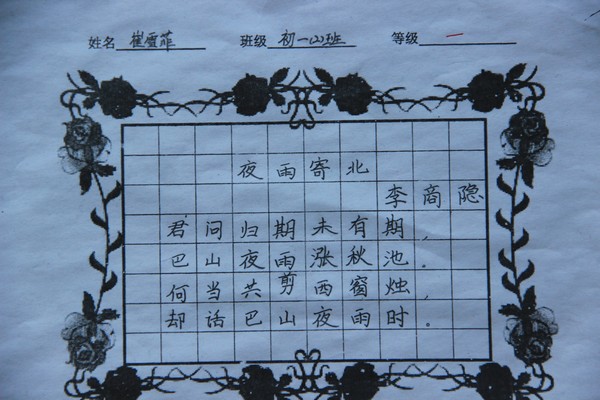 姓名 崔雪菲 班级 初一(2)班 等级 一
夜雨寄北
李商隐
君问归期未有期,
巴山夜雨涨秋池。
何当共剪西窗烛,
却话巴山夜雨时。